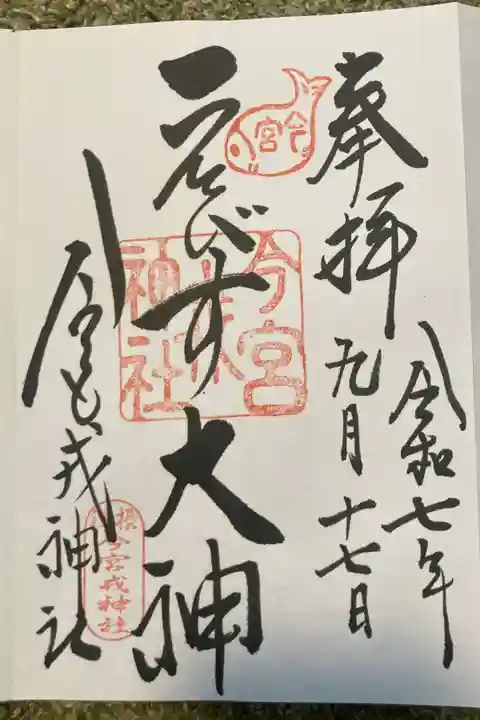 奉拝
令和七年
九月十七日
ゑびす大神
今宮戎神社
今宮
今宮
戎
神社
今宮戎神社